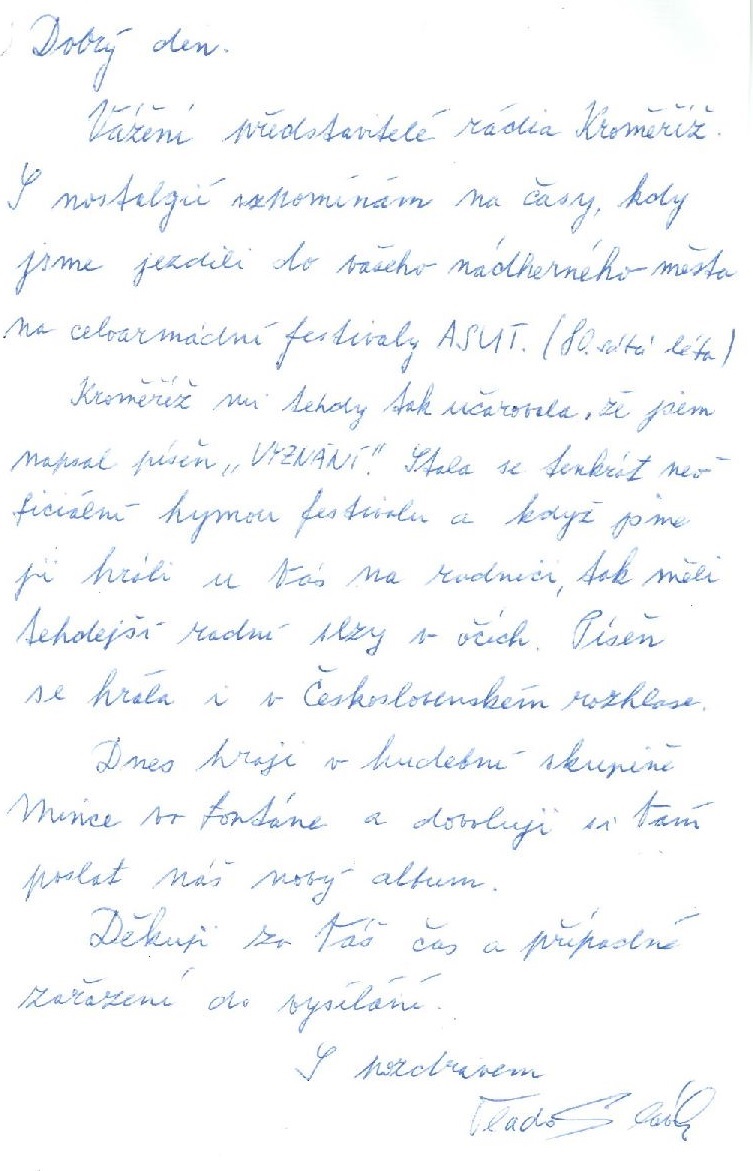 Dobrý den.
Vážení představitelé rádia Kroměříž.
S nostalgií vzpomínám na časy, kdy
jsme jezdili do vašeho nádherného města
na celoarmádní festivaly ASUT. (80.sátá léta)
Kroměříž mi tehdy tak učarovala, že jsem
napsal píseň „VYZNÁNÍ". Stala se tenkrát neo-
ficiální hymnou festivalu a když jsme
ji hráli u Vás na radnici, tak měli
tehdejší radní slzy v očích. Píseň
se hrála i v Československém rozhlase.
Dnes hraji v hudební skupině
Mince vo Fontáne a dovoluji si Vám
poslat náš nový album.
Děkuji za Váš čas a případné
zařazení do vysílání.
S pozdravem
Vlado